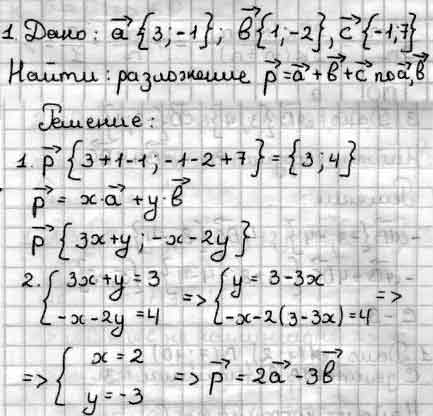 1. Дано: a⃗{3;-1}; b⃗{1;-2}, c⃗{-1;7}
Найти: разложение p⃗=a⃗+b⃗+c⃗ по a⃗,b⃗
Решение:
1. p⃗ {3+1-1; -1-2+7} = {3; 4}
p⃗ = x·a⃗ + y·b⃗
p⃗ {3x+y; -x-2y}
2. { 3x+y=3 => { y = 3-3x =>
-x-2y=4 -x-2(3-3x)=4
=> { x=2 => p⃗ = 2a⃗ -3b⃗
y=-3